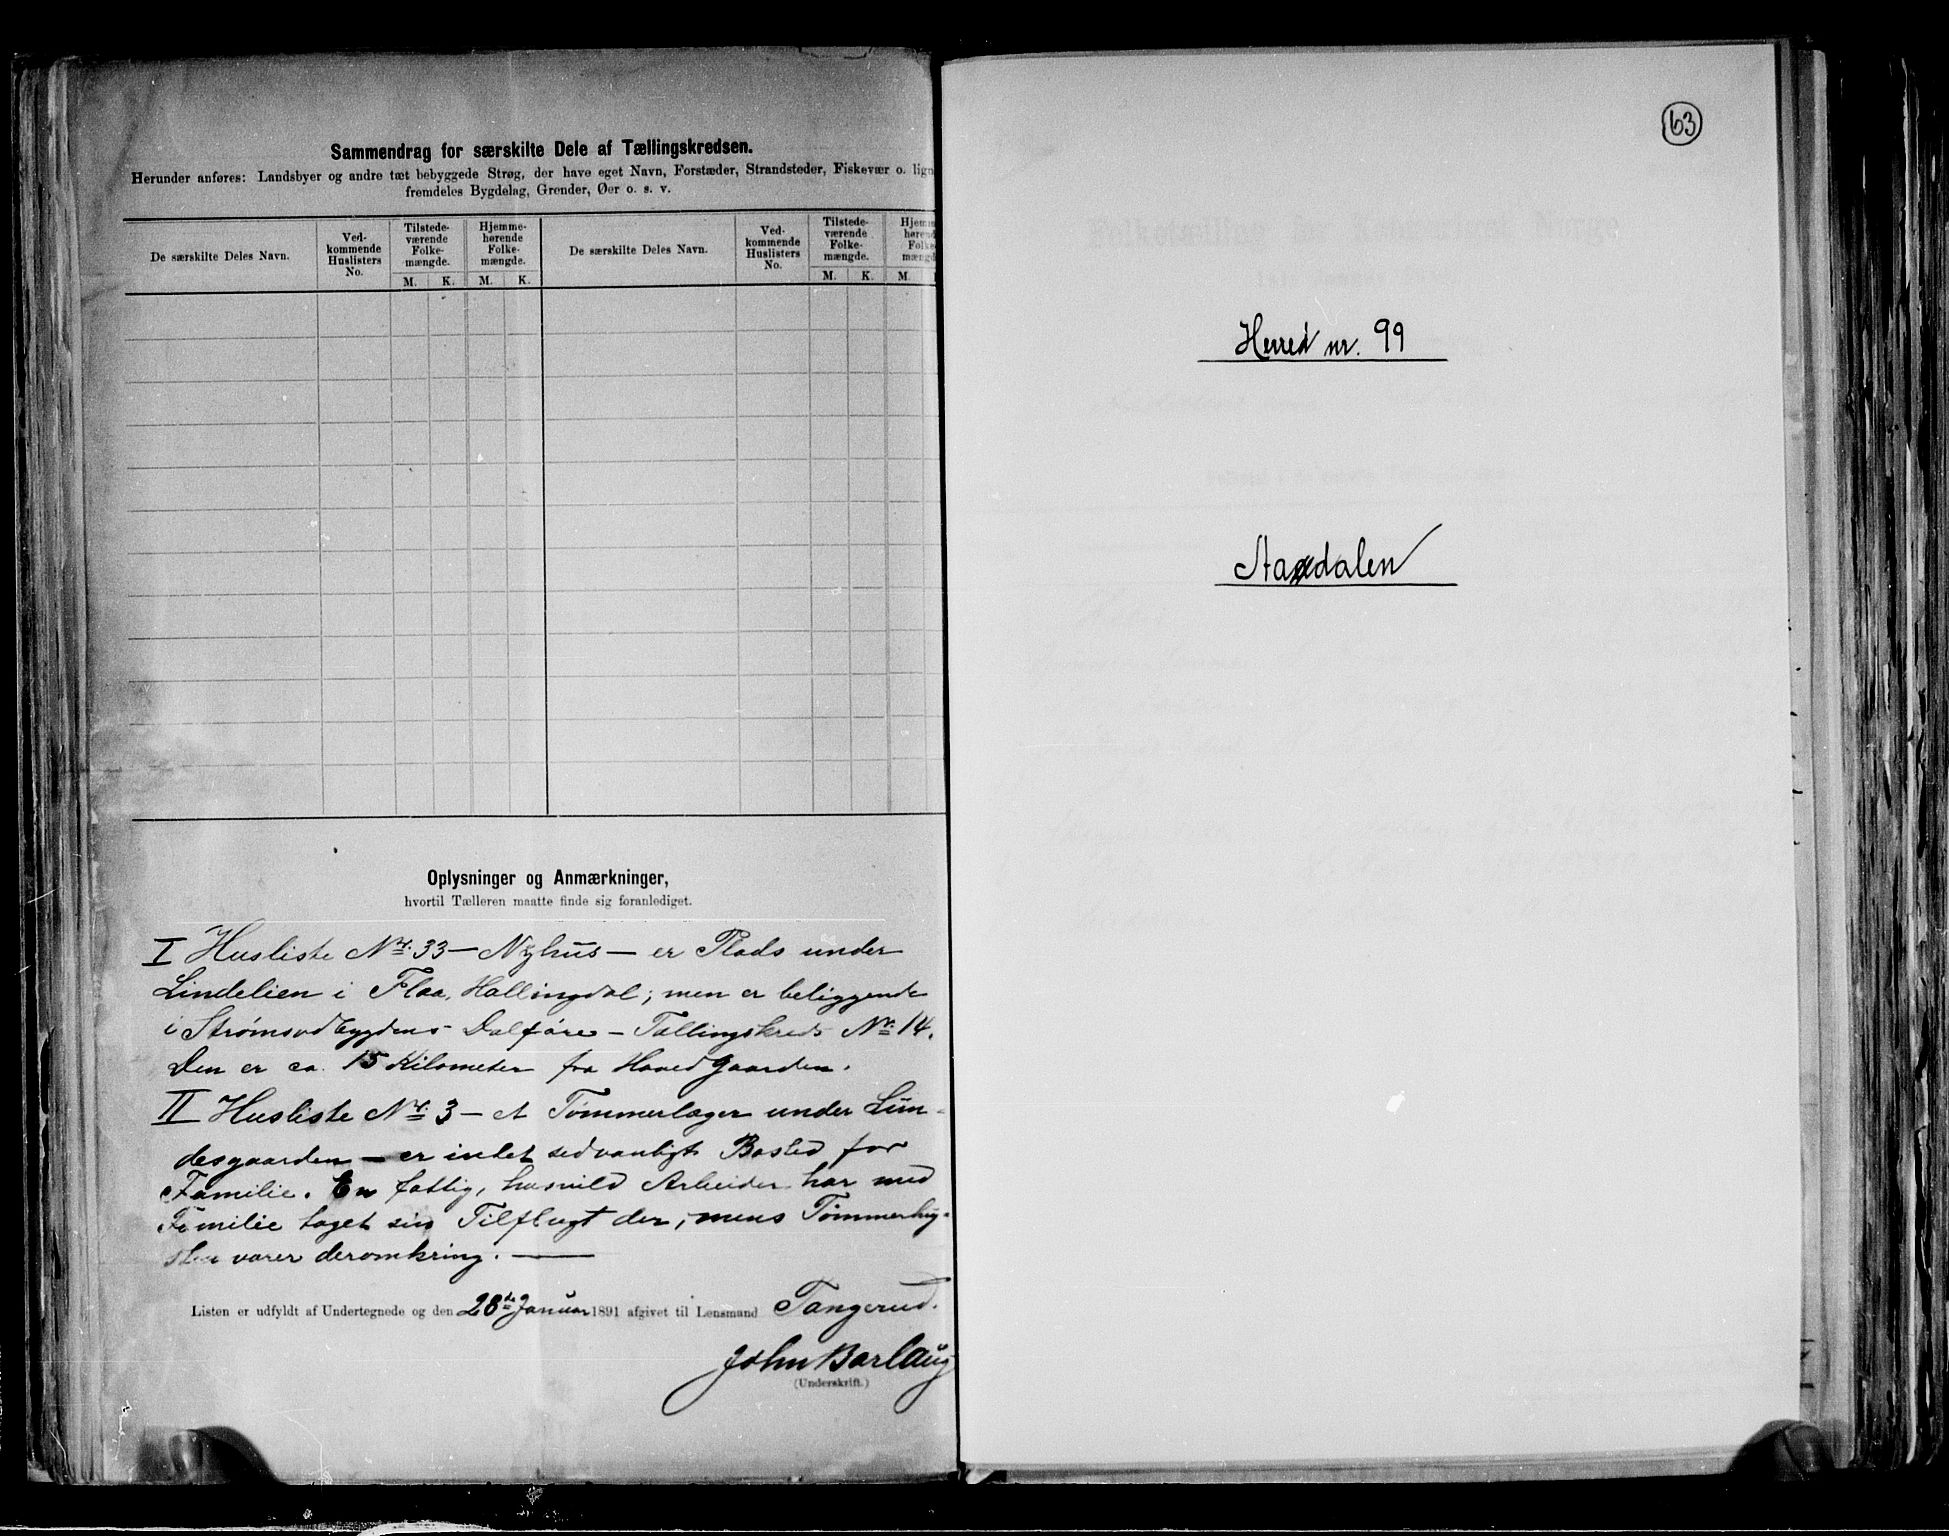 Sammendrag for særskilte Dele af Tællingskredsen.
Herunder anføres: Landsbyer og andre tæt bebyggede Strøg, der have eget Navn, Forstæder, Strandsteder, Fiskevær o. lign
fremdeles Bygdelag, Grender, Øer o. s. v.
De særskilte Deles Navn. Ved-kommende Huslisters No. Tilstede-værende Folke-mængde. Hjemme-hørende Folke-mængde. De særskilte Deles Navn. Ved-kommende Huslisters No. Tilstede-værende Folke-mængde. Hjem
M. K. M. K. M. K. M.
Oplysninger og Anmærkninger,
hvortil Tælleren maatte finde sig foranlediget.
I Husliste Nr. 33 — Nyhus — er Plads under
Lindelien i Flaa, Hallingdal; men er beliggende
i Strømsodbygdens Dalføre — Tællingskreds Nr. 14.
Den er ca. 15 Kilometer fra Hovedgaarden.
II Husliste Nr. 3 — et Tømmerlager under Lun-
desgaarden — er intet sedvanligt Bosted for
Familie. En fattig, husvild Arbeider har med
Familie taget sin Tilflugt der, mens Tømmerhug-
sten varer deromkring. —
Listen er udfyldt af Undertegnede og den 28de Januar 1891 afgivet til Lensmand Tangerud.
John Barlaug
(Underskrift.)
63
Herred nr. 99
Aadalen